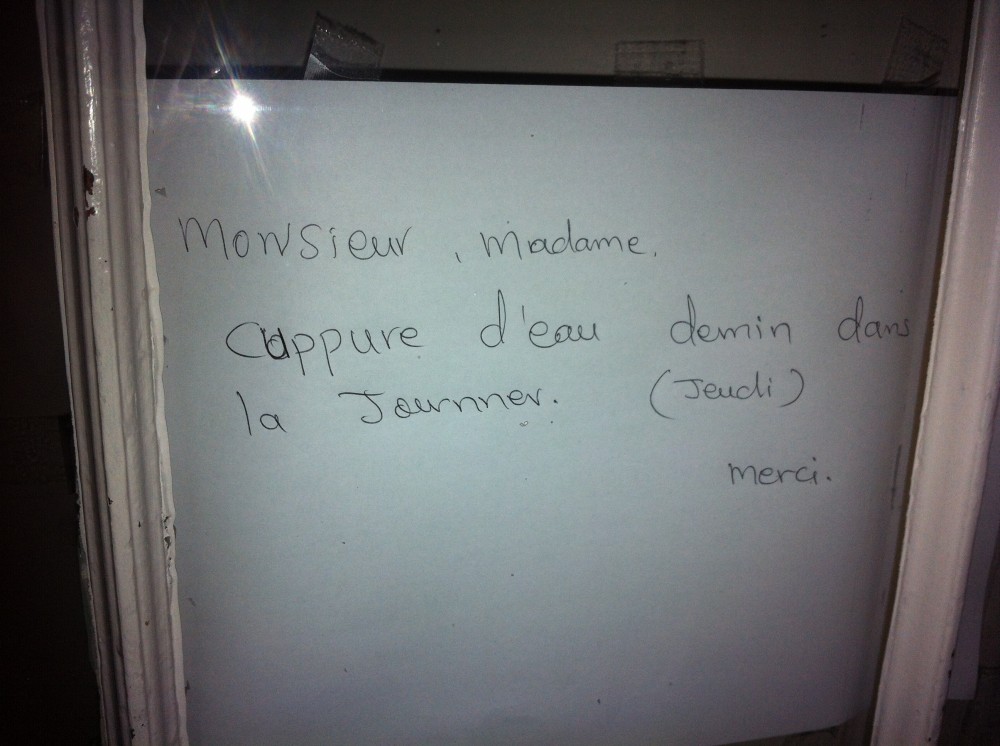 Monsieur, Madame.
Cuppure d'eau demin dans
la Journner. (Jeudi)
merci.